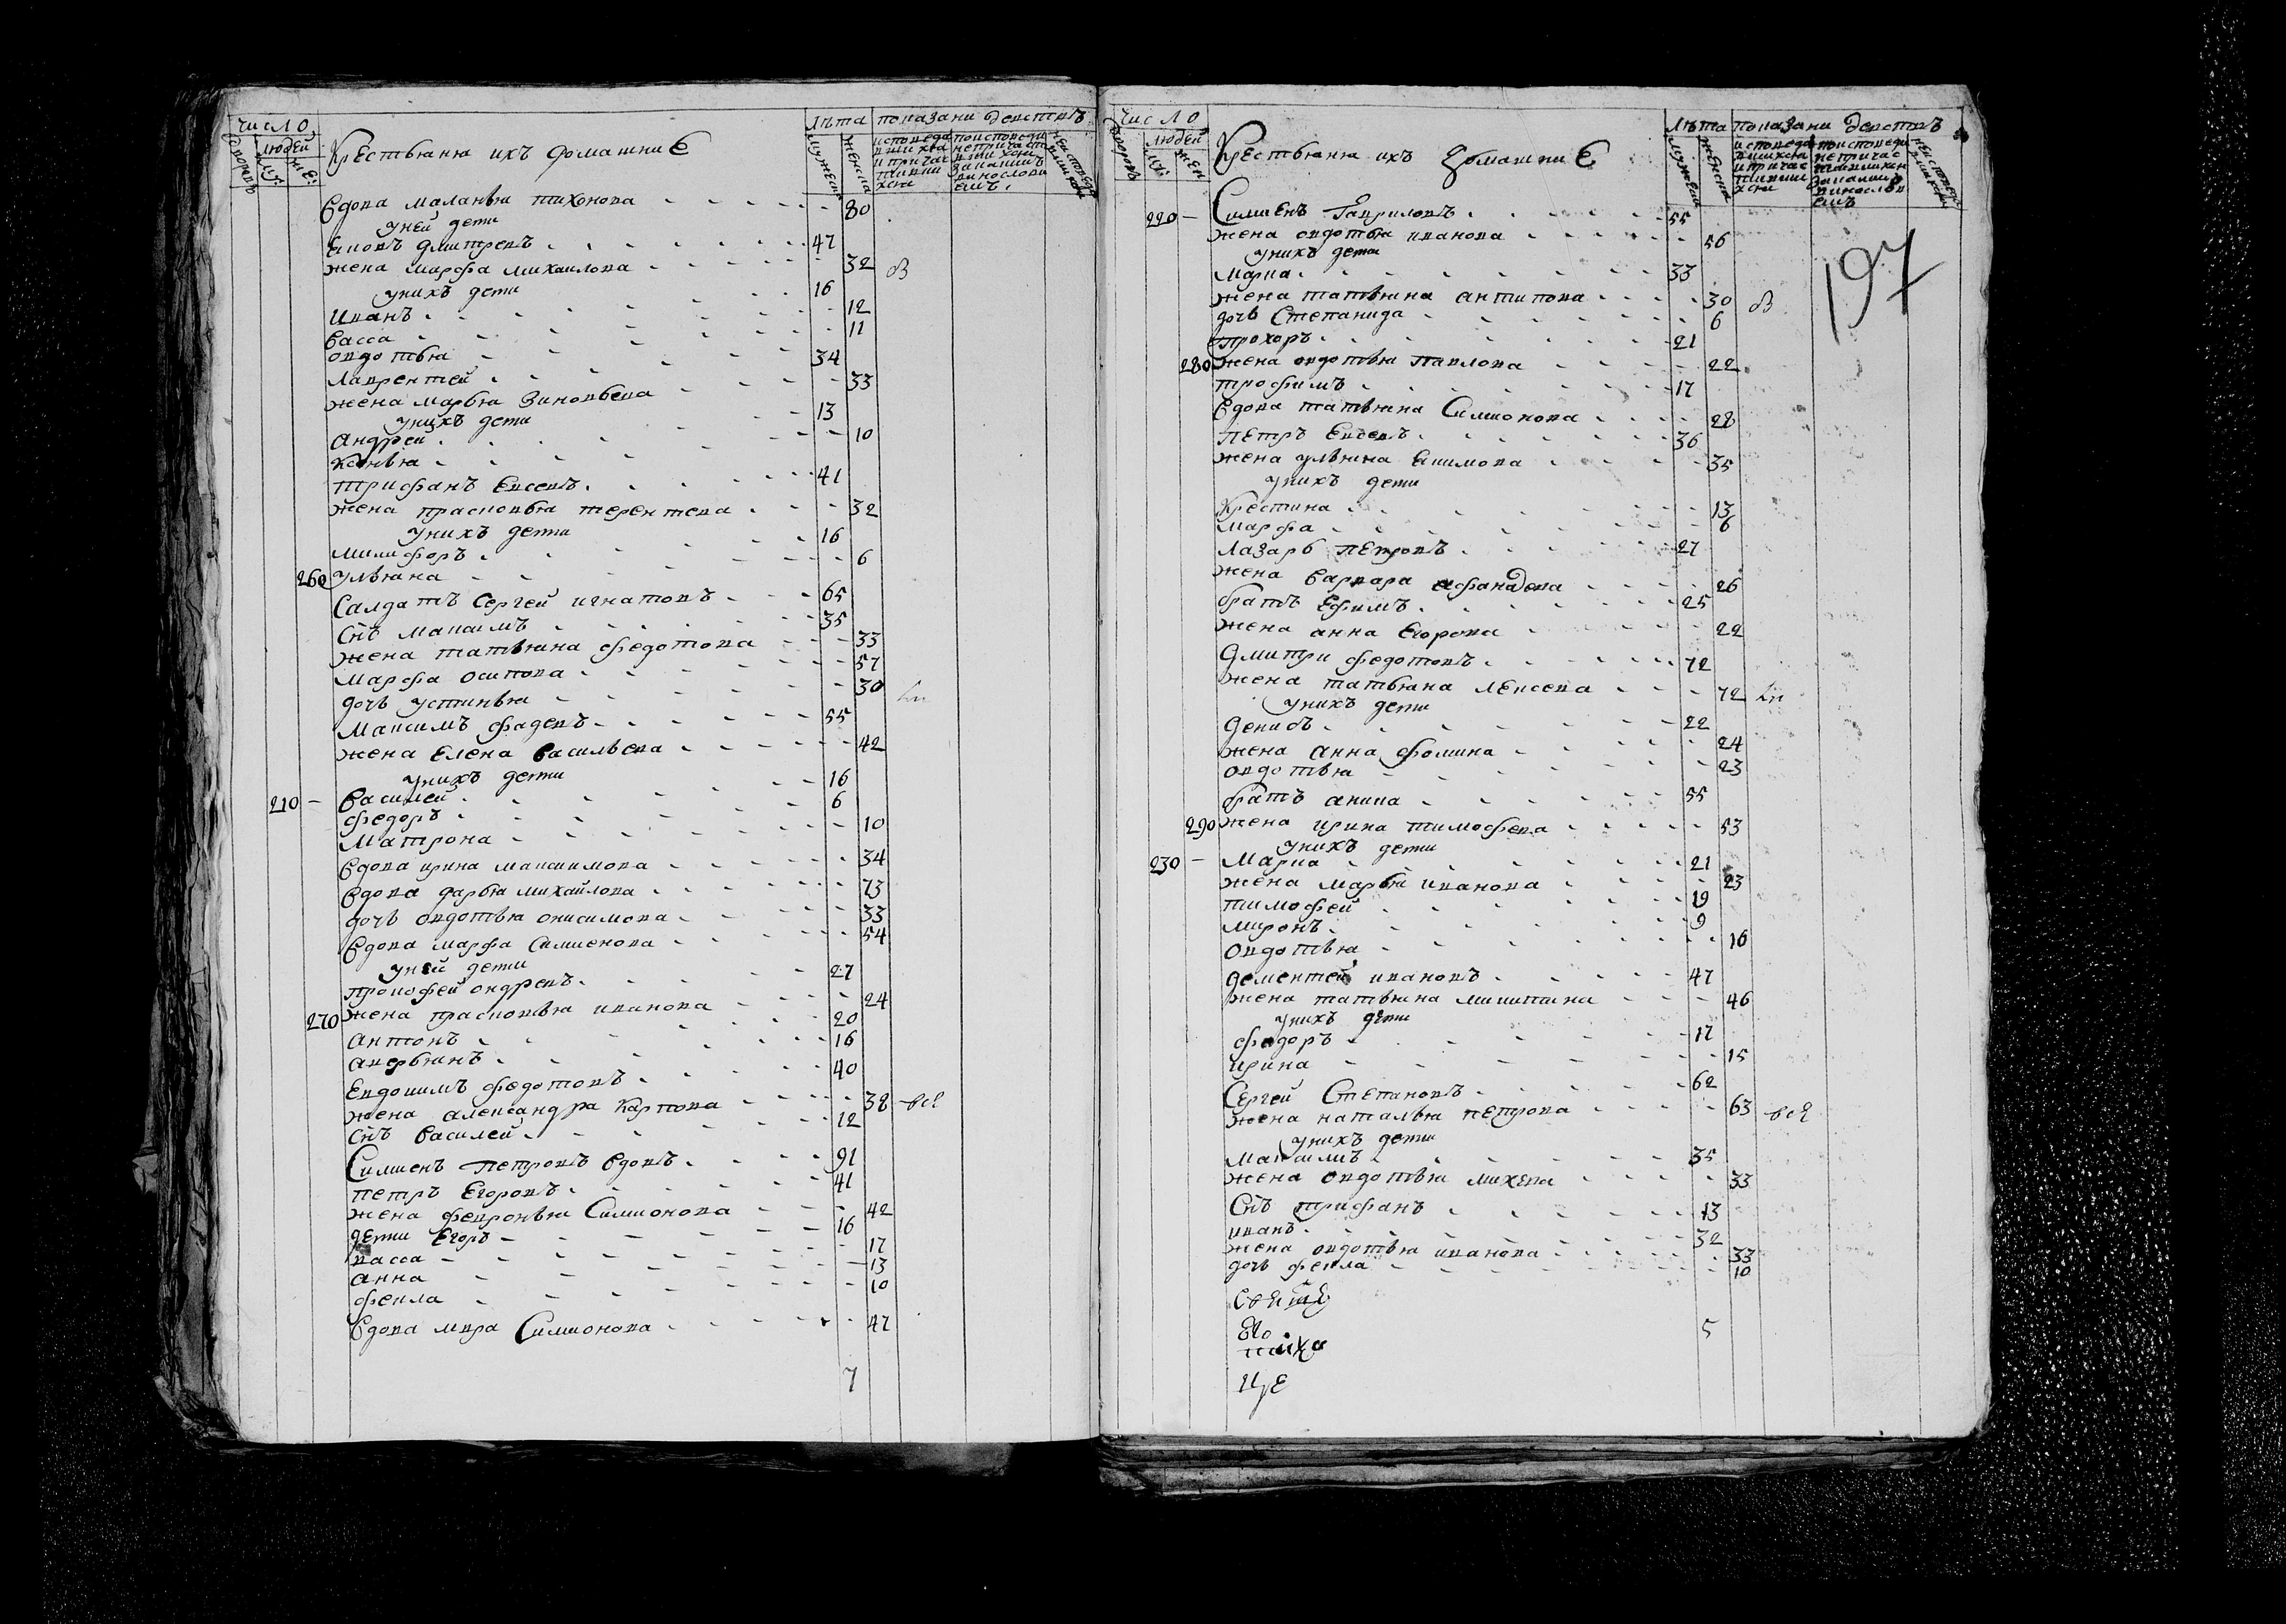 число
людей
дворовъ
му:
же:
Крестьяня ихъ домашние
лѣта
мужеска
женска
показани деиствъ
вдова маланья тихонова 80
уней дети
Яковъ дмитревъ 47
жена марфа михаилова 32 ов
унихъ дети
иванъ 16
васса 12
овдотья 11
лаврентей 34
жена марья зиновьева 33
унихъ дети
андрей 13
ксенья 10
трифанъ Евсевъ 41
жена прасковья терентева 32
унихъ дети
никифоръ 16
260 ульяна 6
Салдатъ Сергей игнатовъ 65
снъ максимъ 35
жена татьяна федотова 33
марфа осипова 57
дочь устинья 30
максимъ фадевъ 55
жена Елена васильева 42
унихъ дети
210 василей 16
федоръ 6
матрона 10
вдова ирина максимова 34
вдова дарья михайлова 73
дочь овдотья онисимова 33
вдова марфа Симионова 54
уней дети
прокофей ондревъ 27
270 жена прасковья иванова 24
антонъ 20
аверьянъ 16
Евдокимъ федотовъ 40
жена александра карпова 38 -все
снъ василей 12
Симионъ петровъ вдовъ 91
петръ Егоровъ 41
жена февронья Симионова 42
дети Егоръ 16
васса 17
анна 13
фекла 10
вдова мвра Симионова 47
7
число
людей
дворовъ
му:
жен
Крестьяня ихъ домашние
лѣта
мужеска
женска
показани деиствъ
197
220 Симионъ Гавриловъ 55
жена овдотья иванова 56
унихъ дети
марка 33
жена татьяна антипова 30 ов
дочь Степанида 6
прохоръ 21
280 жена овдотья павлова 22
трофимъ 17
вдова татьяна Симионова 28
петръ Евсевъ 36
жена ульяна Екимова 35
унихъ дети
Крестина 13
марфа 6
лазарь петровъ 27
жена варвара афанасева 26
братъ Ефимъ 25
жена анна Егорова 22
дмитри федотовъ 72
жена татьяна лексева 72
унихъ дети
денисъ 22
жена анна фомина 24
овдотья 23
братъ аника 55
290 жена ирина тимофева 53
унихъ дети
230 марка 21
жена марья иванова 23
тимофей 19
миронъ 9
овдотья 16
дементей ивановъ 47
жена татьяна микитина 46
унихъ дети
федоръ 17
ирина 15
Сергей Степановъ 62
жена наталья петрова 63 -все
унихъ дети
максимъ 35
жена овдотья михева 33
снъ трифанъ 13
иванъ 32
жена овдотья иванова 33
дочь фекла 10
5